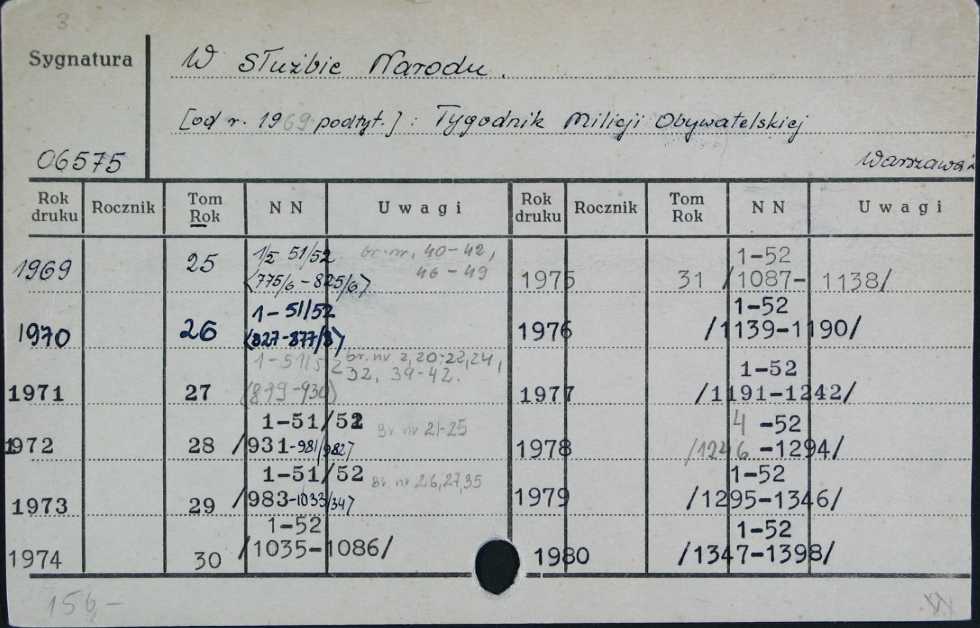 3
Sygnatura W Służbie Narodu.
[od r. 1969 podtyt.]: Tygodnik Milicji Obywatelskiej
06575 Warszawa
Rok druku Rocznik Tom Rok NN Uwagi Rok druku Rocznik Tom Rok NN Uwagi
1969 25 1/2 51/52 br. nr. 40-42,
46-49
<775/6-825/6>
1970 26 1-51/52
<827-877/8>
1971 27 1-51/52 br. nr 2, 20-22, 24,
32, 39-42.
<879-930>
1972 28 1-51/52 Br nr 21-25
/931-981/982>
1973 29 1-51/52 Br. nr 26, 27, 35
/983-1033/34>
1974 30 1-52
/1035-1086/
1975 31 1-52
/1087-1138/
1976 1-52
/1139-1190/
1977 1-52
/1191-1242/
1978 4-52
/1246-1294/
1979 1-52
/1295-1346/
1980 1-52
/1347-1398/
156,-